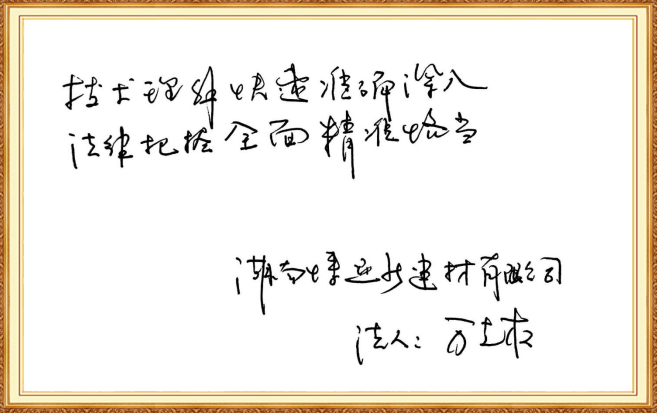 技术理解快速准确深入
法律把握全面精准恰当
湖南恒运新建材有限公司
法人：万志